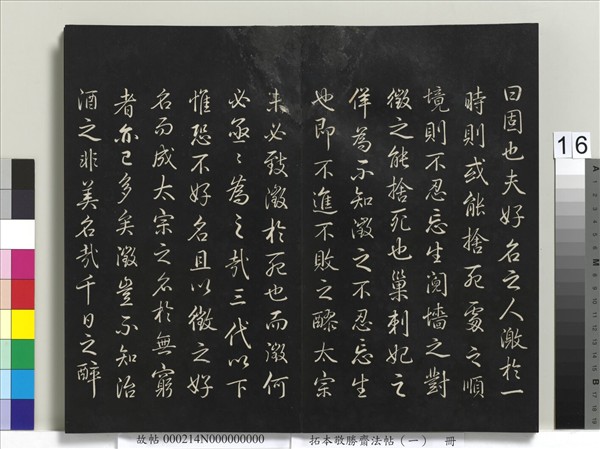 曰固也夫好名之人激於一
時則或能捨死處之順
境則不忍忘生鬩墻之對
徵之能捨死也巢刺妃之
佯為不知徵之不忍忘生
也即不進不敗之醪太宗
未必致徵於死也而徵何
必亟〻為之哉三代以下
惟恐不好名且以徵之好
名而成太宗之名於無窮
者亦已多矣徵豈不知治
酒之非美名哉千日之醉
16
A
M
B
故帖 000214N000000000 拓本敬勝齋法帖（一） 冊